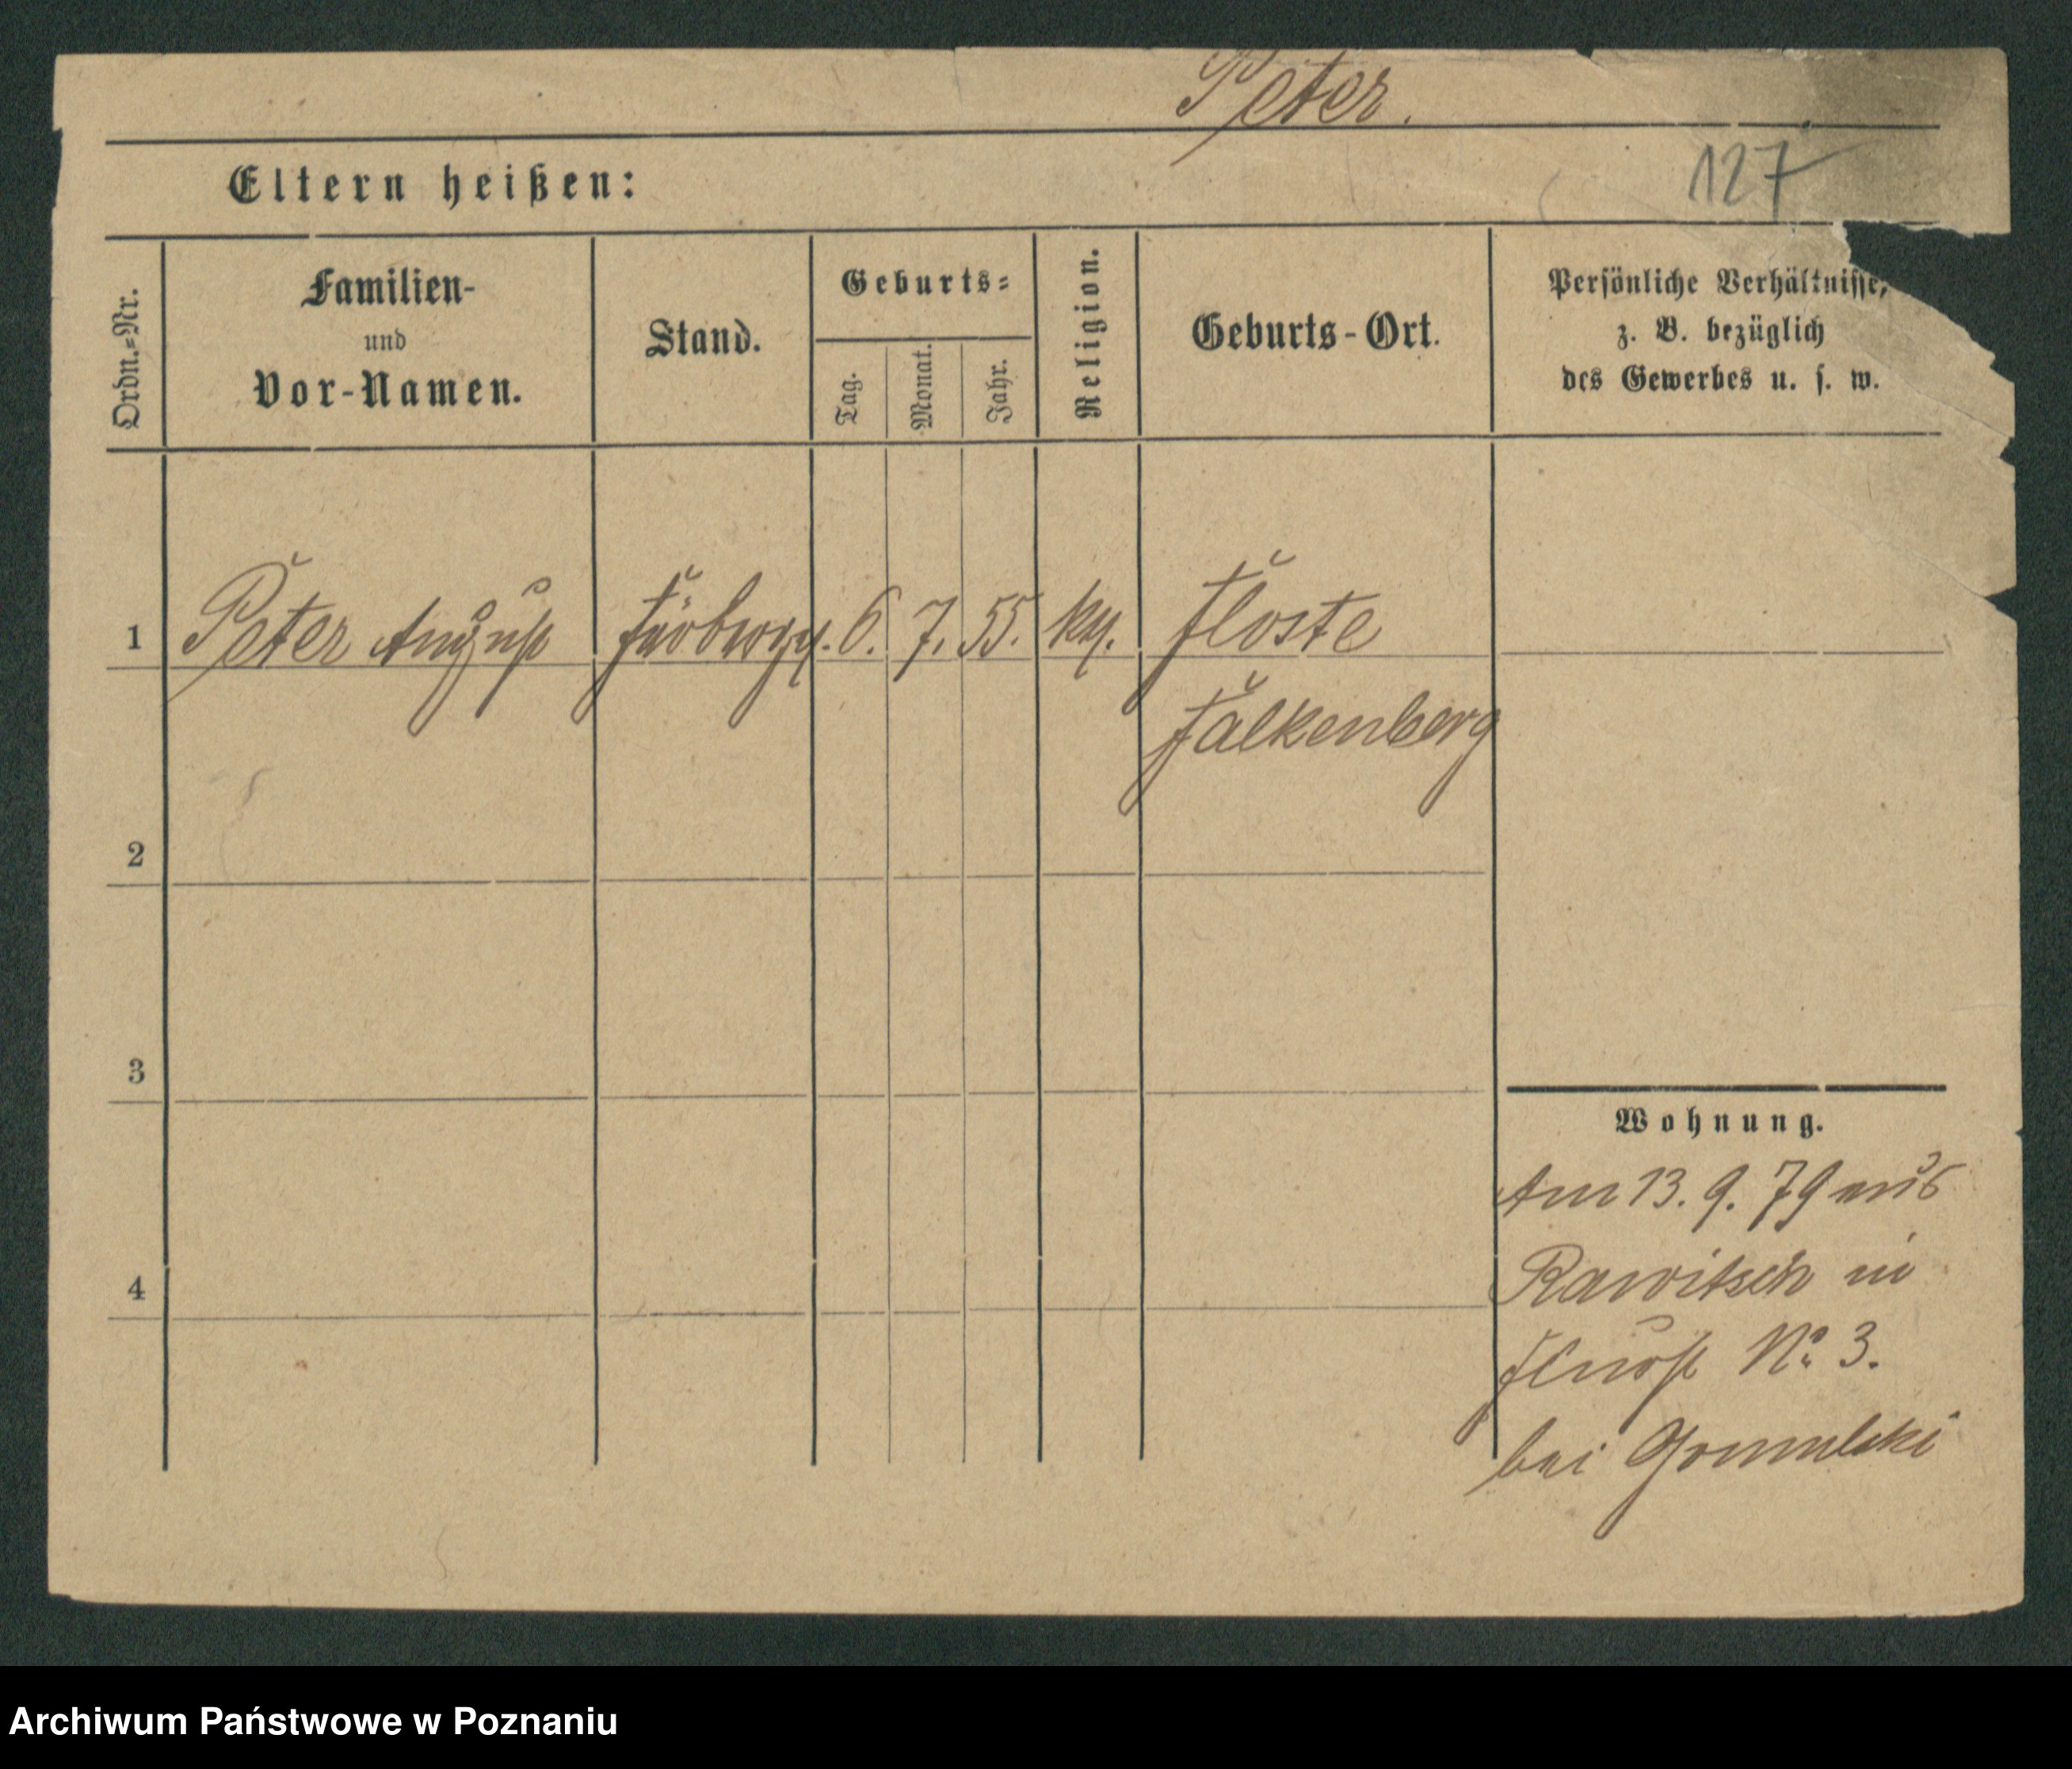 Peter.
127
Eltern heißen:
Ordn.=Nr.
Familien-
und
Vor-Namen.
Stand.
Geburts=
Tag.
Monat.
Jahr.
Religion.
Geburts-Ort.
Persönliche Verhältnisse,
z. B. bezüglich
des Gewerbes u. s. w.
1 Peter August Färberg. 6. 7. 55. Floste
Falkenberg
2
3
4
Wohnung.
Am 13. 9. 79 aus
Rawitsch in
No 3.
bei
Archiwum Państwowe w Poznaniu